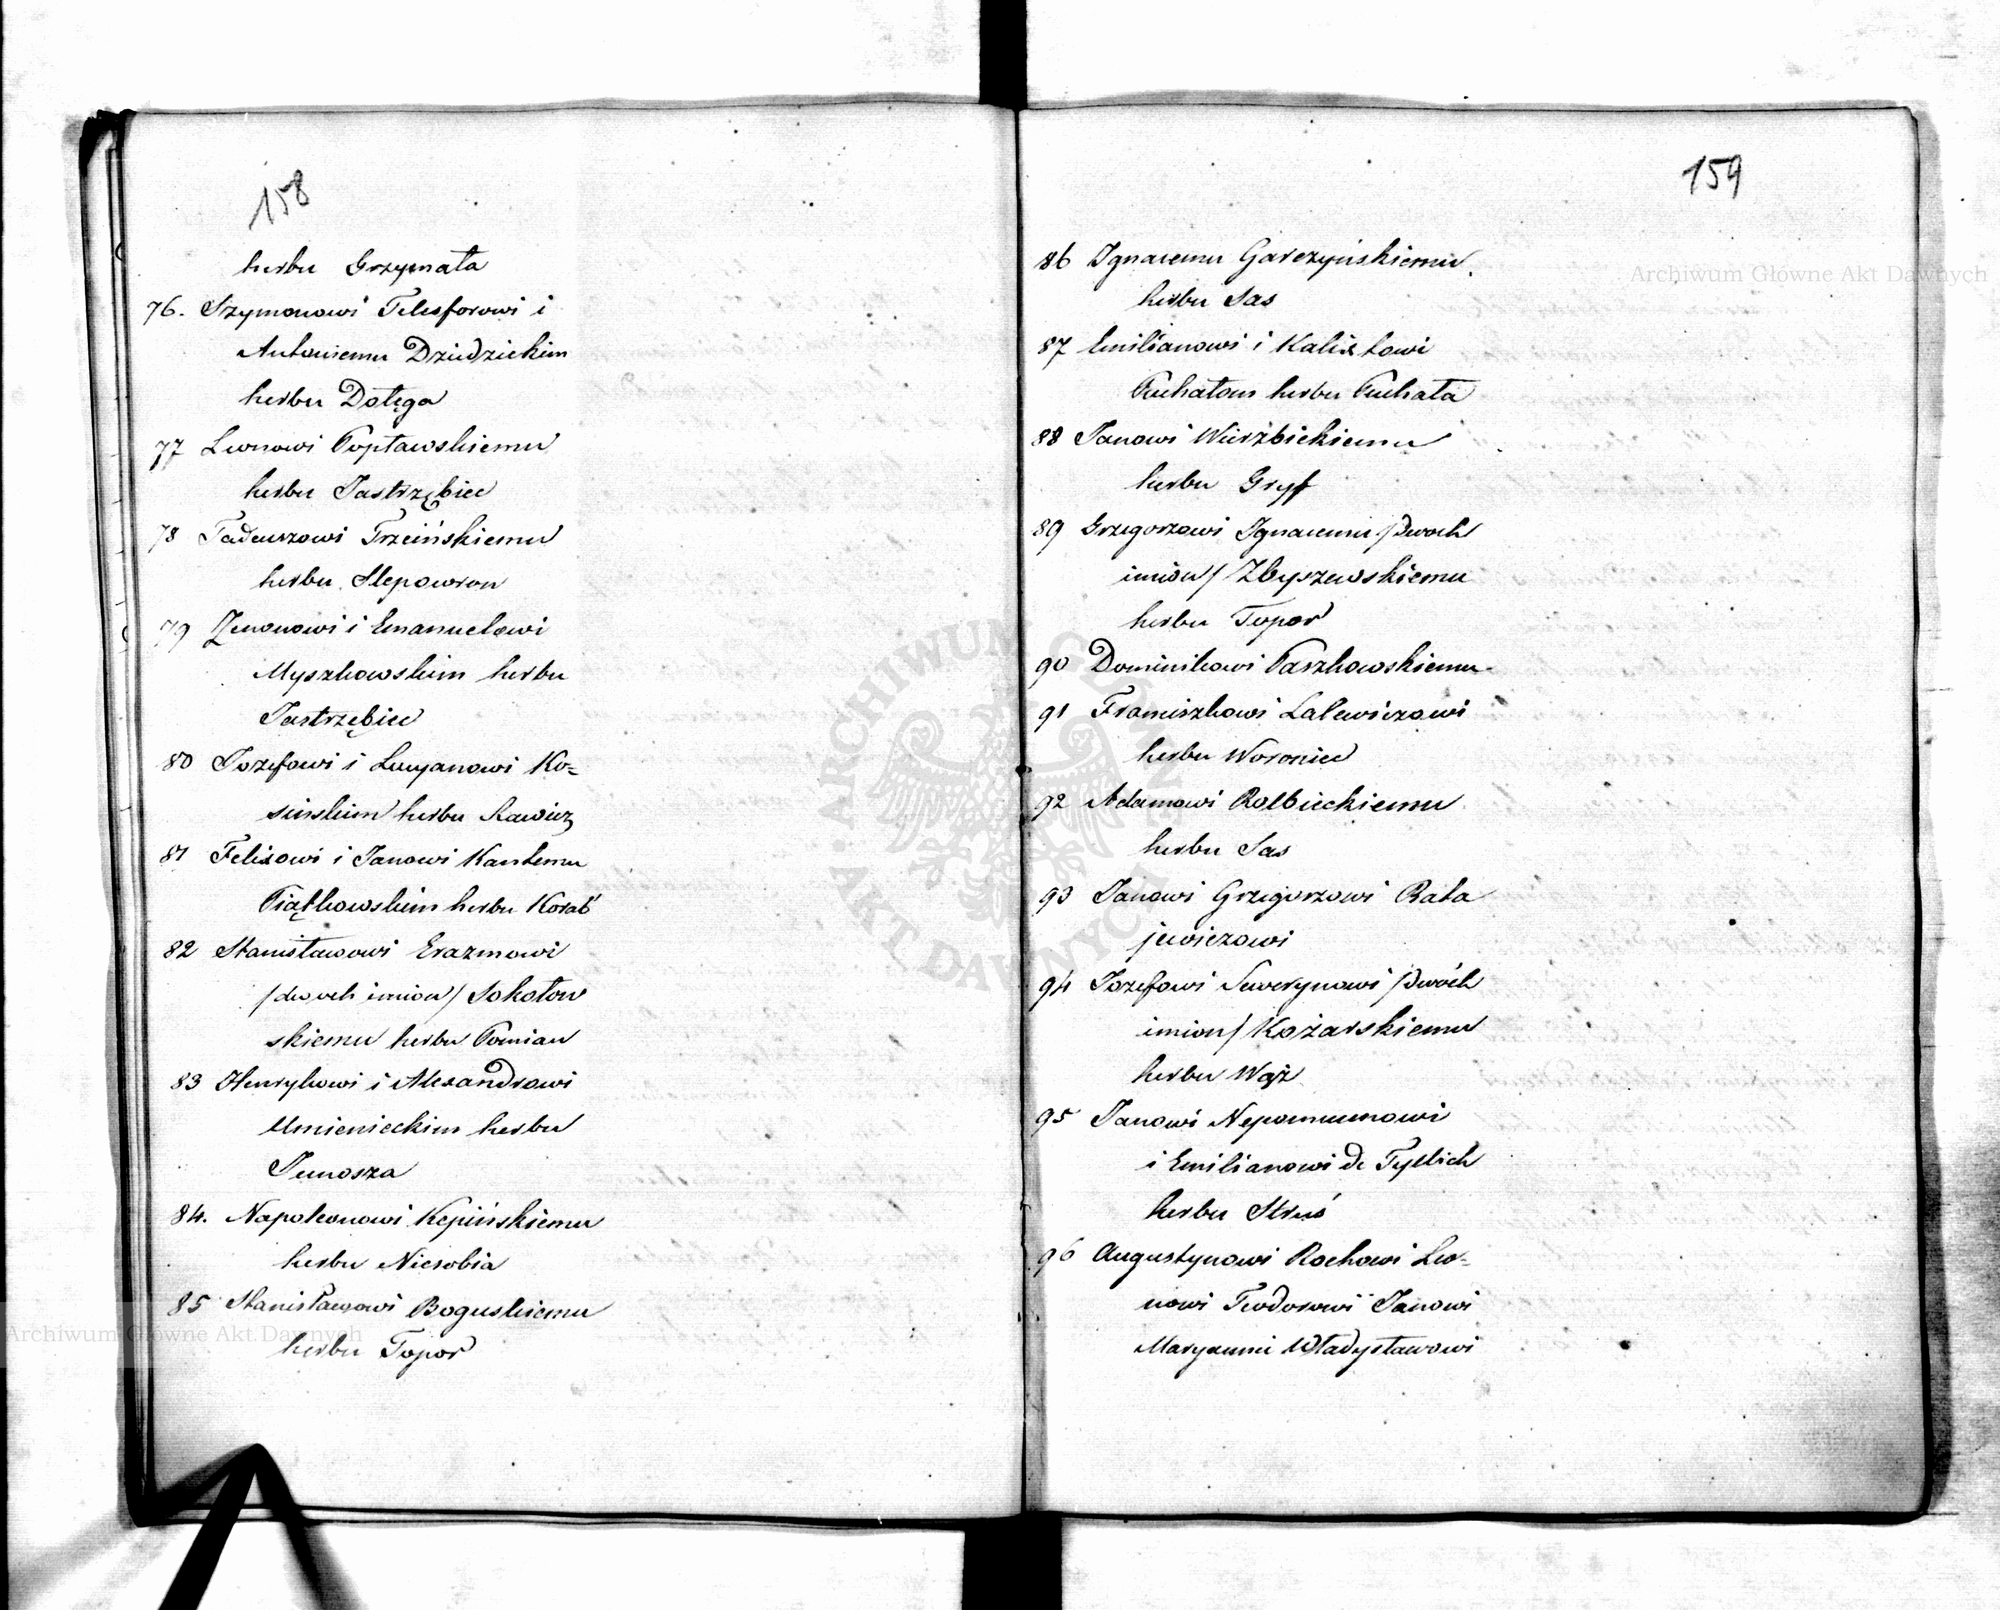 158
herbu Grzymała
76. Szymonowi Telesforowi i
Antoniemu Dziedzickim
herbu Dołęga
77 Leonowi Popławskiemu
herbu Jastrzębiec
78 Tadeuszowi Trzcińskiemu
herbu Slepowron
79 Zenonowi i Emanuelowi
Myszkowskim herbu
Jastrzębiec
80 Jozefowi i Lucyanowi Ko=
sinskim herbu Rawicz
81 Felixowi i Janowi Kantemu
Piątkowskim herbu Korab'
82 Stanisławowi Erazmowi
/dwoch imion/ Sokołow
skiemu herbu Pomian
83 Henrykowi i Alexandrowi
Umienieckim herbu
Junosza
84. Napoleonowi Kępińskiemu
herbu Niesobia
85 Stanisławowi Boguskiemu
herbu Topor
159
86 Ignacemu Garczyńskiemu
herbu Sas
87 Emilianowi i Kalixtowi
Puchałom herbu Puchała
88 Janowi Wierzbickiemu
herbu Gryf
89 Grzegorzowi Ignacemu /dwoch
imion/ Zbyszewskiemu
herbu Topor
90 Dominikowi Paszkowskiemu
91 Franciszkowi Lalewiczowi
herbu Woroniec
92 Adamowi Rolbieckiemu
herbu Sas
93 Janowi Grzegorzowi Rata
jewiczowi
94 Jozefowi Sewerynowi /dwóch
imion/ Kożarskiemu
herbu Wąż
95 Janowi Nepomucenowi
i Emilianowi de Tyllich
herbu Struś
96 Augustynowi Rochowi Leo=
nowi Teodorowi Janowi
Maryanni Władysławowi
Archiwum Główne Akt Dawnych
Archiwum Główne Akt Dawnych
ARCHIWUM GŁÓWNE AKT DAWNYCH